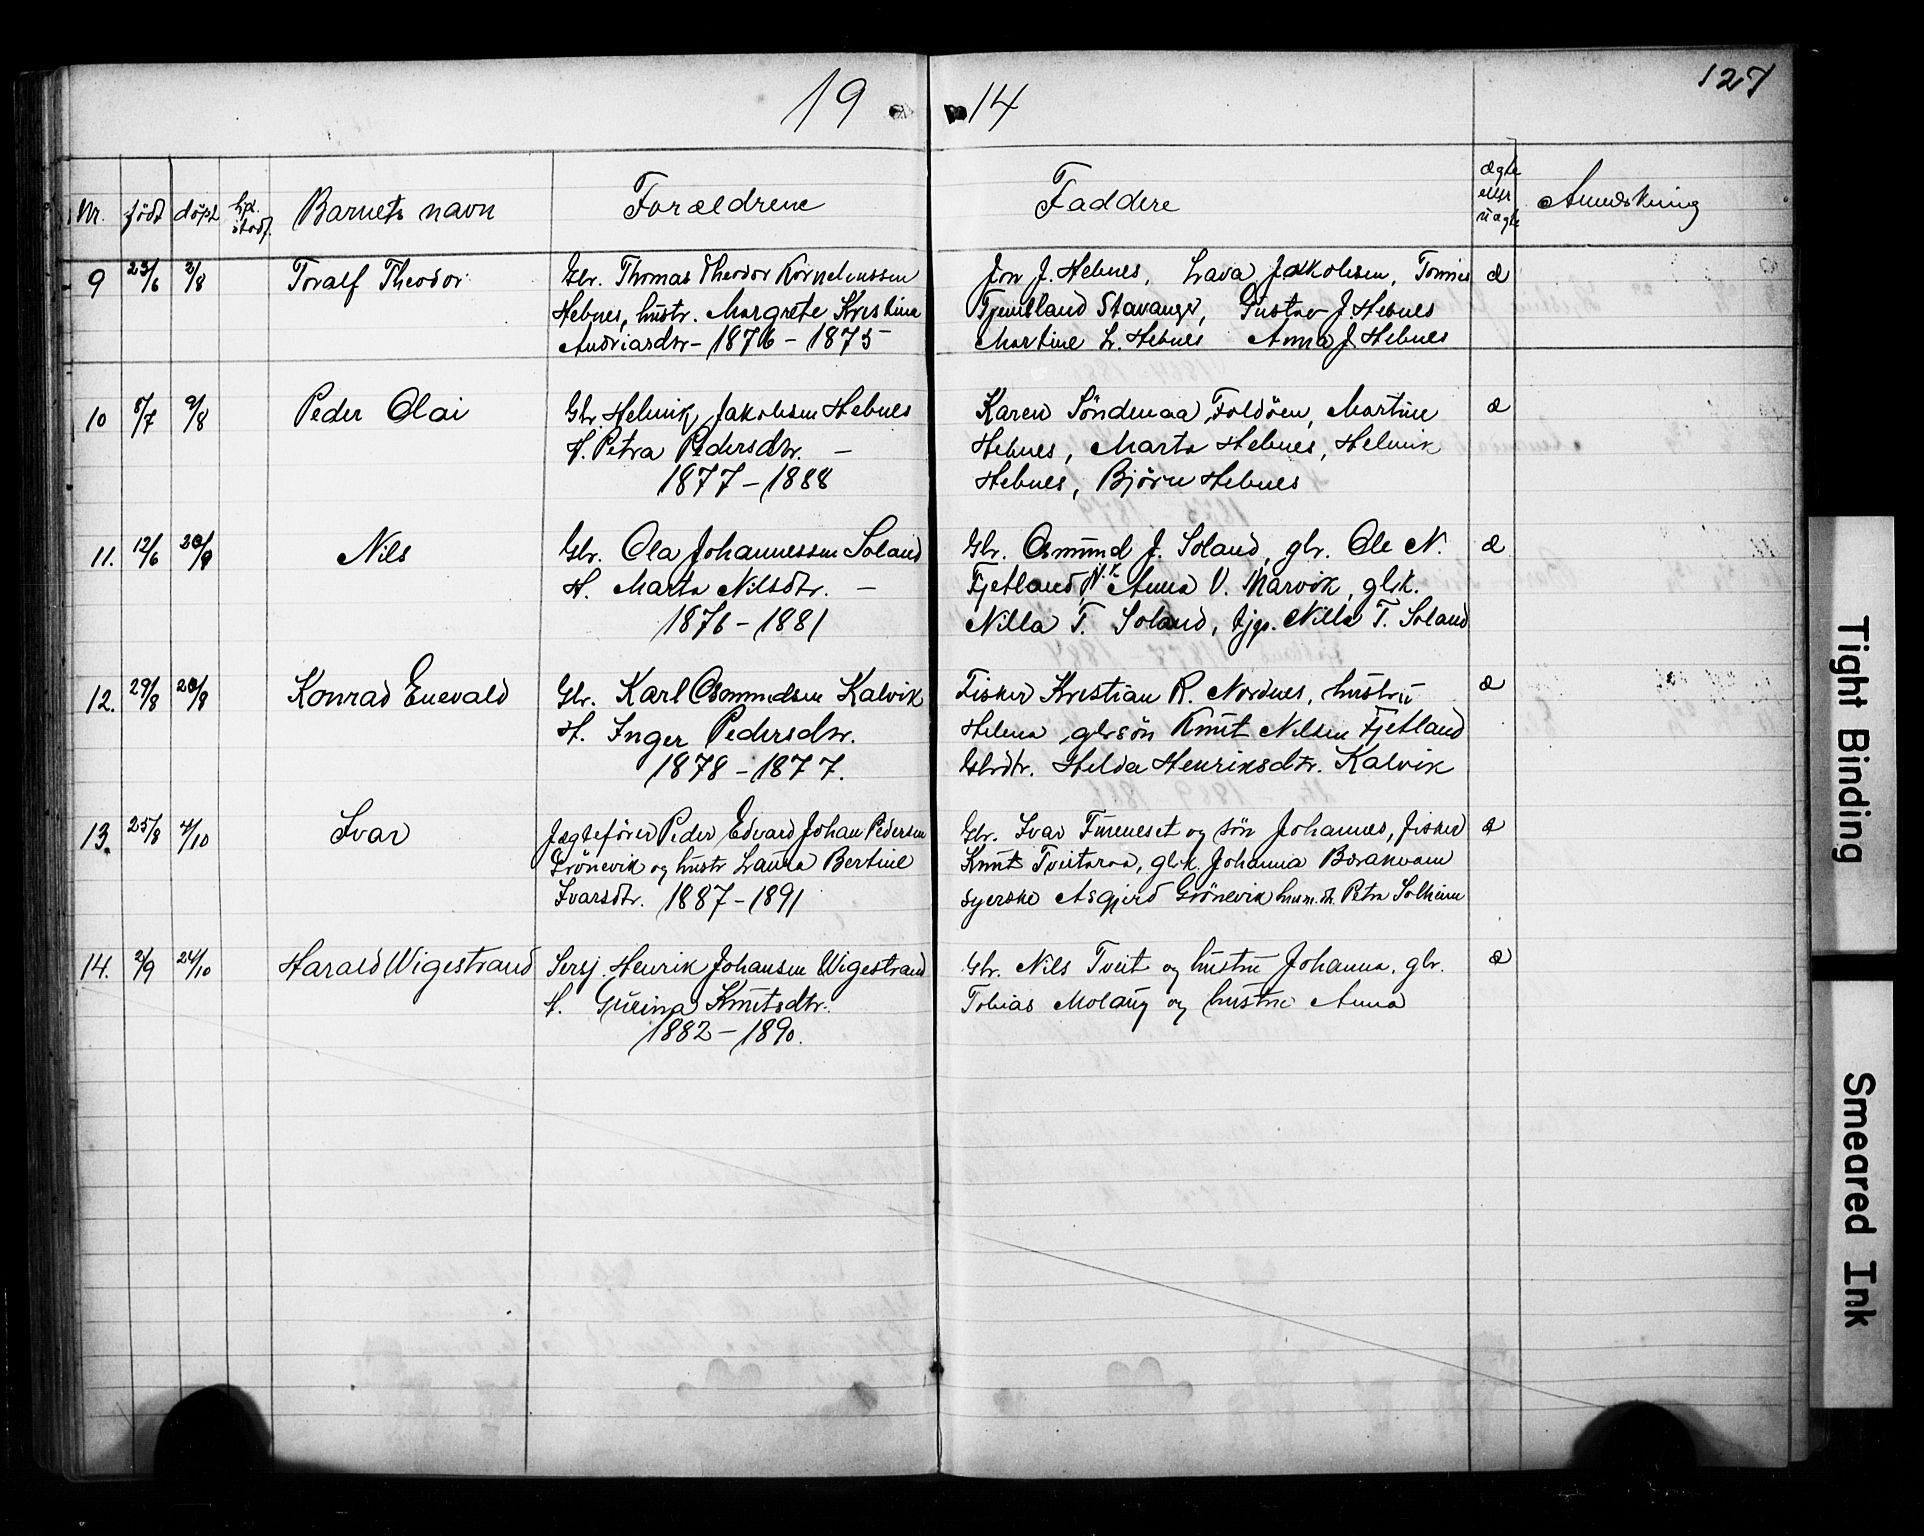 127
19 14
Nr. født døpt hj. stadf. Barnets navn Forældrene Faddere ægte eller uægte Anmerkning
9 23/6 2/8 Toralf Theodor Gbr. Thomas Theodor Korneliussen Jon J. Hebnes, Lava Jakobsen, Tomine æ
Hebnes, hustr. Margrete Kristina Stavanger, Gustav J Hebnes
Andriasdtr - 1876 - 1875 Martine L. Hebnes Anna J. Hebnes
10 8/7 9/8 Peder Olai Gbr. Helmik Jakobsen Hebnes Karen Søndenaa, Foldøen, Martine æ
H. Petra Pedersdtr. - Hebnes, Marta Hebnes, Helmik
1877 - 1888 Hebnes, Bjørn Hebnes
11. 12/6 20/9 Nils Gbr. Ola Johannessen Soland Gbr. Osmund J. Soland, gbr. Ole N. æ
H. Marta Nilsdtr. - Fjetland, Anna V. Marvik, gbk.
1876 - 1881 Nilla T. Soland, tjgp. Nilla T. Soland
12. 29/8 20/9 Konrad Enevald Gbr. Karl Osmundsen Kalvik Fisker Kristian R. Nordnes, hustru æ
H. Inger Pedersdtr. Helena gbrsøn Knut Nilsen Fjetland
1878 - 1877. Gbrdtr. Helda Henriksdtr. Kalvik
13. 25/8 4/10 Ivar Jægtefører Peder Edvard Johan Pedersen Gbr. Ivar Fureneset og søn Johannes, fisker æ
Grønevik og hustr Laura Bertine Knut Tveitaraa, gbk. Johanna Barakvam
Ivarsdtr. 1887 - 1891 syerske Asgjerd Grønevik husm. Petra Solheim
14. 2/9 24/10 Harald Wigestrand Sersj. Henrik Johansen Wigestrand Gbr. Nils Tveit og hustru Johanna, gbr. æ
H. Gurina Knutsdtr. Tobias Molaug og hustru Anna
1882 - 1890.
Tight Binding
Smeared Ink